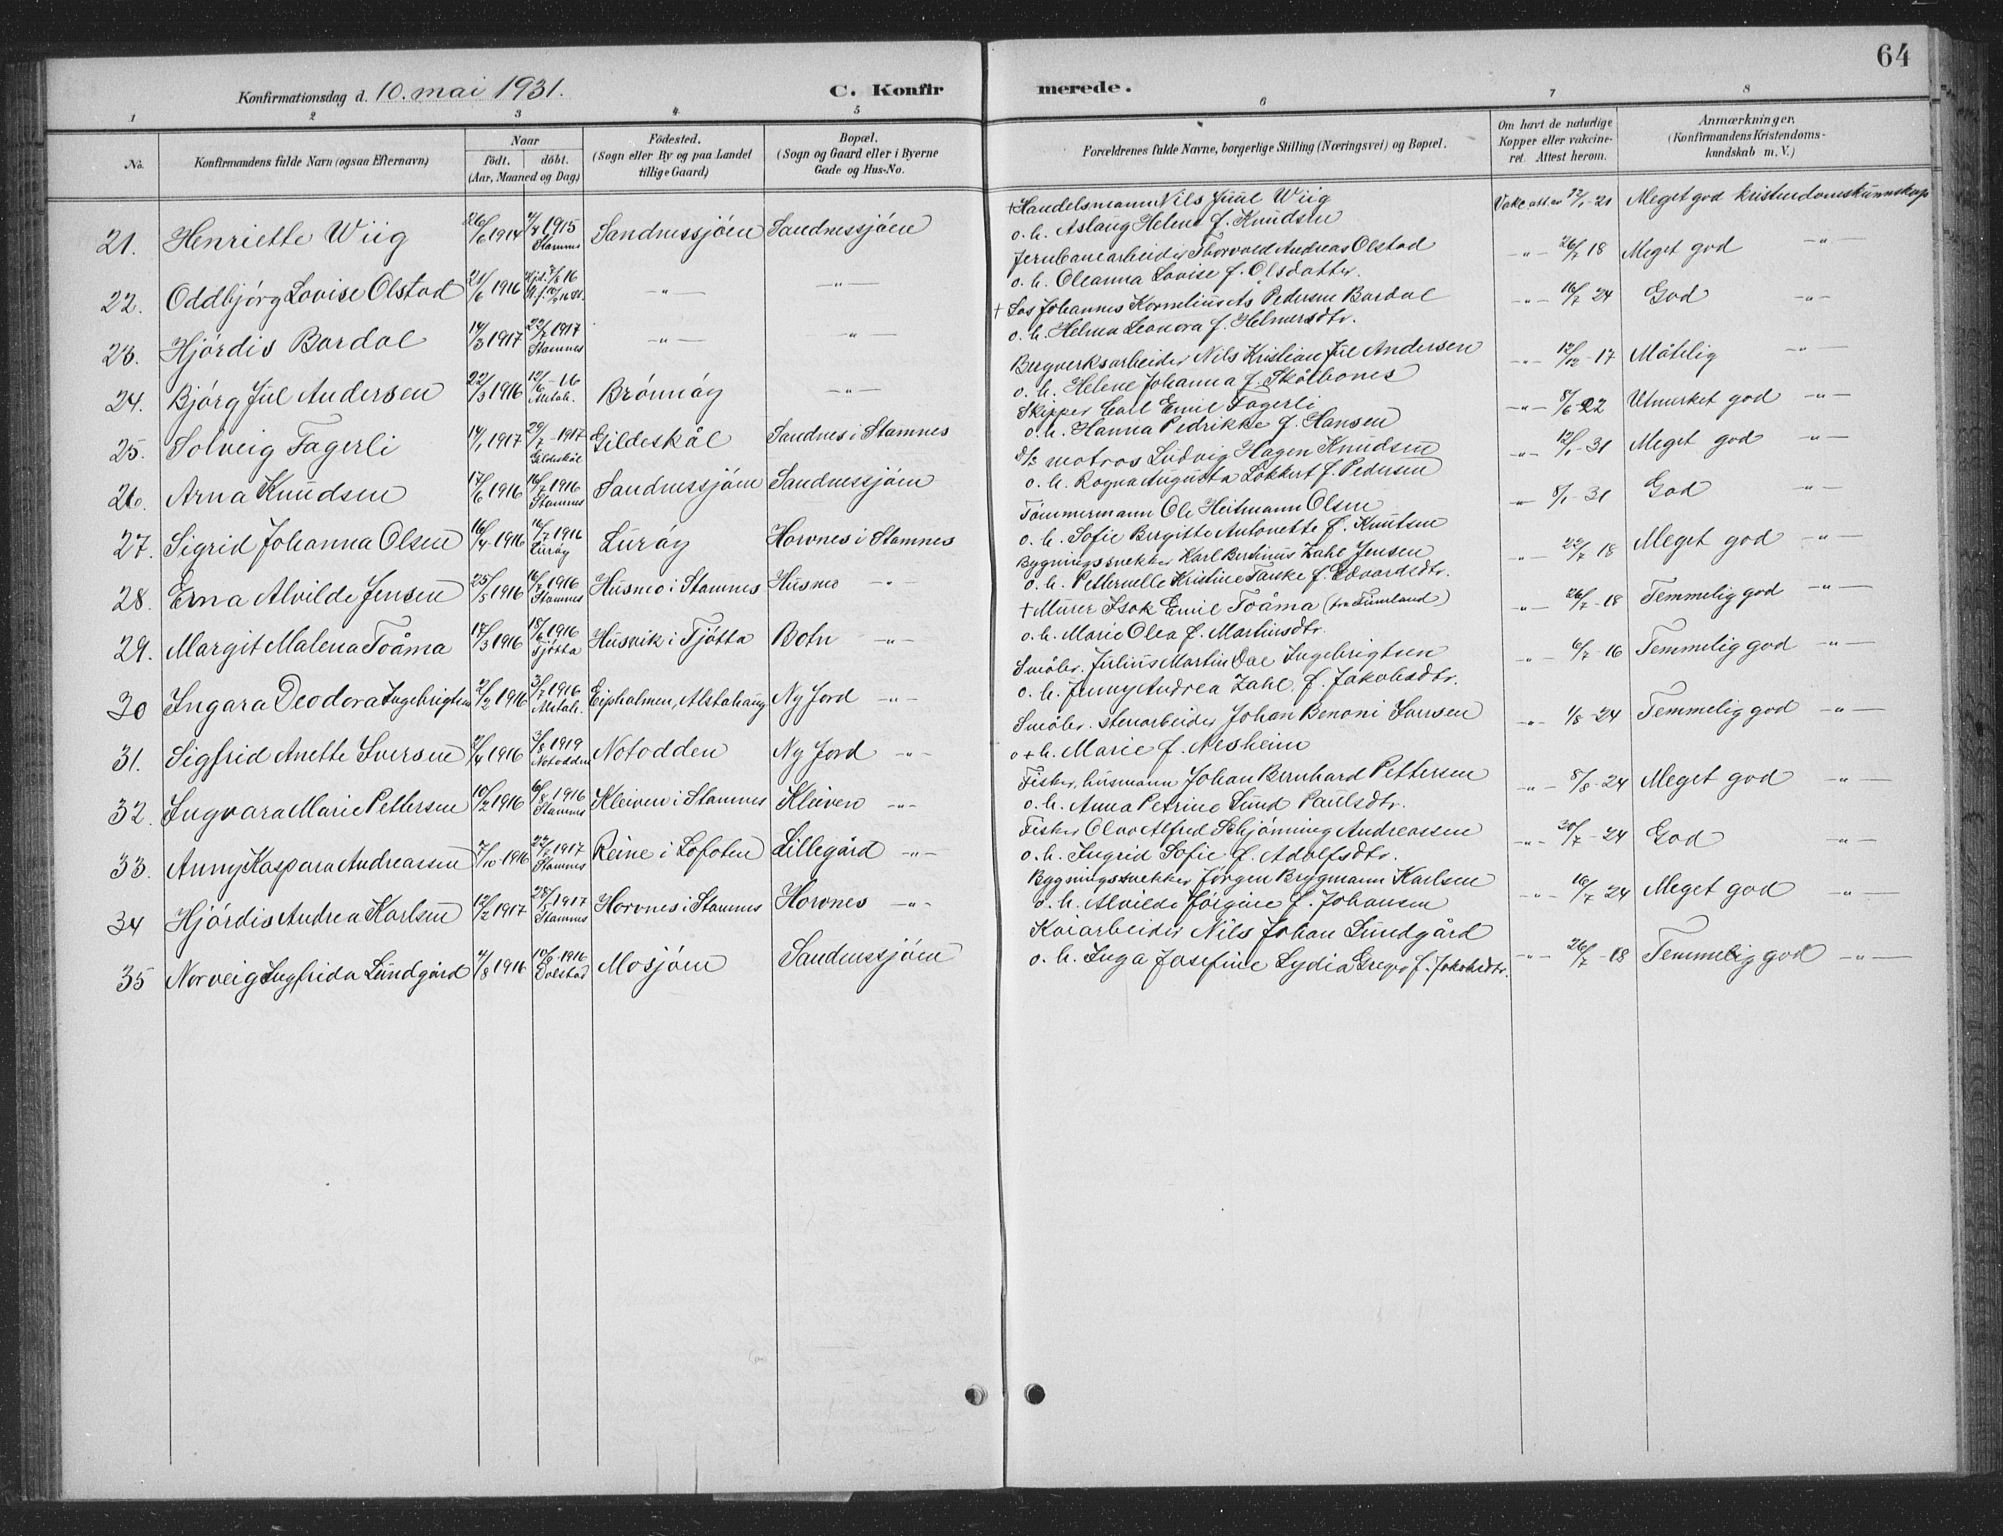 64
Konfirmationsdag d. 10. mai 1931. C. Konfir merede.
1 2 3 4 5 6 7 8
No. Konfirmandens fulde Navn (ogsaa Efternavn) Naar födt. döbt. (Aar, Maaned og Dag) Födested. (Sogn eller By og paa Landet tillige Gaard) Bopæl. (Sogn og Gaard eller i Byerne Gade og Hus-No. Forældrenes fulde Navne, borgerlige Stilling (Næringsvei) og Bopæl. Om havt de naturlige Kopper eller vakcineret. Attest herom. Anmærkninger. (Konfirmandens Kristendomskundskab m. V.)
+ Handelsmann Nils Juul Wiig
21. Henriette Wiig 26/6 1914 4/4 1915 Stamnes Sandnessjöen Sandnessjöen o. h. Aslaug Helene f. Knudsen Vakc. att. av 12/1-21 Meget god kristendomskunnskap
Jernbanearbeider Thorvald Andreas Olstad
22. Oddbjörg Lovise Olstad 21/6 1916 -"- -"- o. h. Oleanna Lovise f. Olsdatter. -"- 26/7 18 Meget god -"-
+ Los Johannes Kornelius As Pedersen Bardal
23. Hjördis Bardal 14/3 1917 22/7 1917 Stamnes -"- -"- o. h. Helma Leonora f. Helmersdtr. -"- 16/7 24 God -"-
Bergverksarbeider Nils Kristian Jul Andersen
24. Bjørg Jul Andersen 22/3 1916 12/6-16 Alstah. Brönnöy -"- o. h. Helene Johanna f. Skålbones -"- 12/12-17 Måtelig -"-
Skipper Carl Emil Fagerli
25. Solveig Fagerli 14/1 1917 29/7-1917 Gildeskål Gildeskål Sandnes i Stamnes o. h. Hanna Pedrikke f. Hansen -"- 8/6-22 Utmerket god -"-
d/s matros Ludvig Hagen Knudsen
26. Arna Knudsen 17/6 1916 16/7 1916 Stamnes Sandnessjöen Sandnessjöen o. h. Ragna Augusta Lökkert f. Pedersen -"- 12/1-31 Meget god -"-
Tömmermann Ole Heitmann Olsen
27. Sigrid Johanna Olsen 16/4-1916 16/7 1916 Luröy Luröy Horvnes i Stamnes o. h. Sofie Birgitte Antonette f. Knutsen -"- 8/1-31 God -"-
Bygningssnekker Karl Bertinus Zahl Jensen
28. Erna Alvilde Jensen 25/5 1916 16/7 1916 Stamnes Husmo i Stamnes Husmo -"- o. h. Petternelle Kristine Taiske f. Edvardsdtr. -"- 22/7 18 Meget god -"-
+ Murer Isak Emil Toåma
29. Margit Malena Toåma 17/3 1916 18/6 1916 Tjötta Husvik i Tjötta Botn -"- o. h. Marie Olea f. Martinsdtr. -"- 26/7-18 Temmelig god -"-
Småbr. Julius Martin Dae Ingebrigtsen
30 Ingara Deodora Ingebrigtsen 2/2 1916 3/7 1916 Alstah. Eipholmen, Alstahaug Ny Jord -"- o. h. Jenny Andrea Zahl f. Jakobsdtr. -"- 6/7-16 Temmelig god -"-
Småbr. stenarbeider Johan Benoni Iversen
31. Sigfrid Anette Iversen 2/4 1916 3/8 1919 Notodden Notodden Ny Jord -"- o + h. Marie f. Nesheim -"- 1/8-24 Temmelig god -"-
Fisker, husmann Johan Bernhard Pettersen
32. Ingvara Marie Pettersen 10/2 1916 6/8 1916 Stamnes Kleiven i Stamnes Kleiven -"- o. h. Anna Petrine Sund Paulsdtr. -"- 8/8-24 Meget god -"-
Fisker Olav Alfred Schjönning Andreassen
33. Anny Kaspara Andreassen 7/10-1916 22/7 1917 Stamnes Reine i Lofoten Lillegård -"- o. h. Ingrid Sofie f. Adolfsdtr. -"- 20/7-24 God -"-
Bygningssnekker Jörgen Brygmann Karlsen
34 Hjördis Andrea Karlsen 12/2 1917 28/5 1917 Stamnes Horvnes i Stamnes Horvnes -"- o. h. Alvilde Jörgine f. Johansen -"- 16/7 24 Meget god -"-
Kaiarbeider Nils Johan Lundgård
35 Norveig Ingfrida Lundgård 4/8 1916 10/9-1916 Dolstad Mosjöen Sandnessjöen o. h. Inga Josefine Lydia Grego f. Jakobsdtr. -"- 26/7-18 Temmelig god -"-